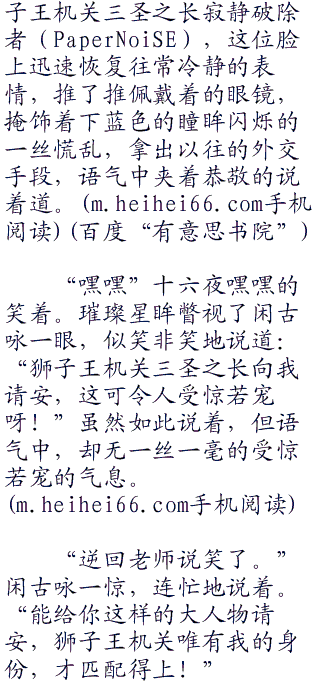 子王机关三圣之长寂静破除
者（PaperNoiSE），这位脸
上迅速恢复往常冷静的表
情，推了推佩戴着的眼镜，
掩饰着下蓝色的瞳眸闪烁的
一丝慌乱，拿出以往的外交
手段，语气中夹着恭敬的说
着道。(m.heihei66.com手机
阅读)(百度“有意思书院”)
“嘿嘿”十六夜嘿嘿的
笑着。璀璨星眸瞥视了闲古
咏一眼，似笑非笑地说道：
“狮子王机关三圣之长向我
请安，这可令人受惊若宠
呀！”虽然如此说着，但语
气中，却无一丝一毫的受惊
若宠的气息。
(m.heihei66.com手机阅读)
“逆回老师说笑了。”
闲古咏一惊，连忙地说着。
“能给你这样的大人物请
安，狮子王机关唯有我的身
份，才匹配得上！”